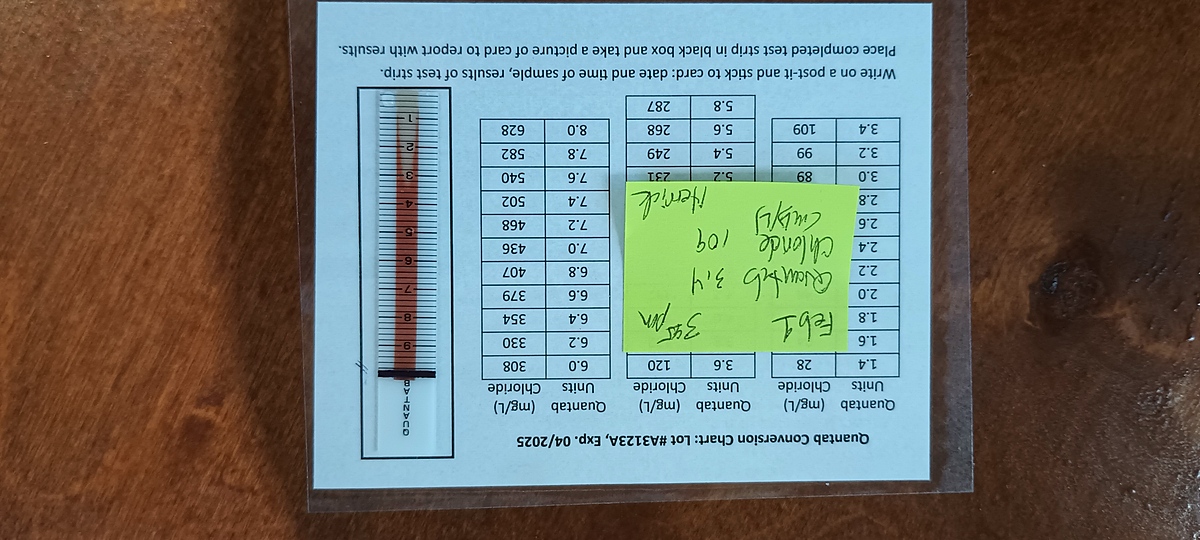 Quantab Conversion Chart: Lot #A3123A, Exp. 04/2025
Quantab Units (mg/L) Chloride
1.4 28
1.6
1.8
2.0
2.2
2.4
2.6
2.8
3.0 89
3.2 99
3.4 109
Quantab Units (mg/L) Chloride
3.6 120
5.2 231
5.4 249
5.6 268
5.8 287
Quantab Units (mg/L) Chloride
6.0 308
6.2 330
6.4 354
6.6 379
6.8 407
7.0 436
7.2 468
7.4 502
7.6 540
7.8 582
8.0 628
Feb 1 345 pm
Quantab 3.4
Chloride 109
(mg/L)
Herrick
QUANTAB
9
8
7
6
5
4
3
2
1
Write on a post-it and stick to card: date and time of sample, results of test strip.
Place completed test strip in black box and take a picture of card to report with results.